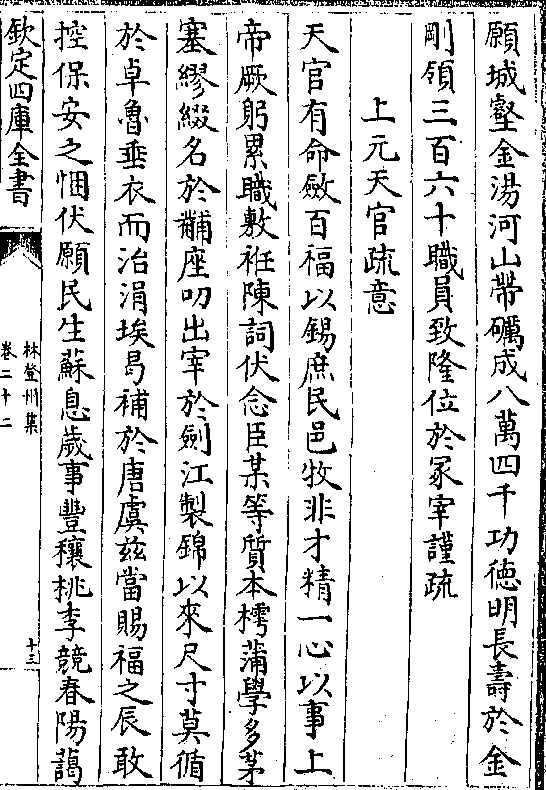 願城壑金湯河山帶礪成八萬四千功德明長壽於金
剛領三百六十職員致隆位於冢宰謹疏
上元天官疏意
天官有命斂百福以錫庶民邑牧非才精一心以事上
帝厥躬累職敷袵陳詞伏念臣某等質本樗蒲學多茅
塞繆綴名於黼座叨出宰於劍江製錦以來尺寸莫循
於卓魯垂衣而治涓埃曷補於唐虞兹當賜福之辰敢
控保安之悃伏願民生蘇息歲事豐穰桃李競春陽藹
欽定四庫全書
林登州集
卷二十二
十三